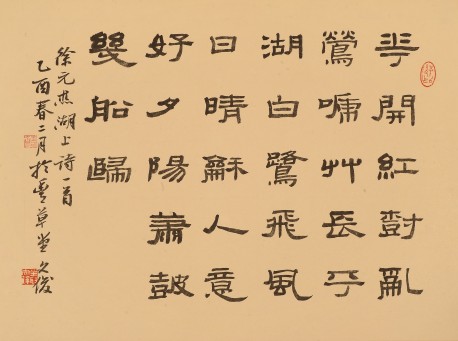 華開紅尌亂
鶯啼艸長平
湖白鷺飛風
日晴龢人意
好夕陽蕭鼓
幾船歸
徐元杰湖上詩一首
乙酉春二月於草堂久俊